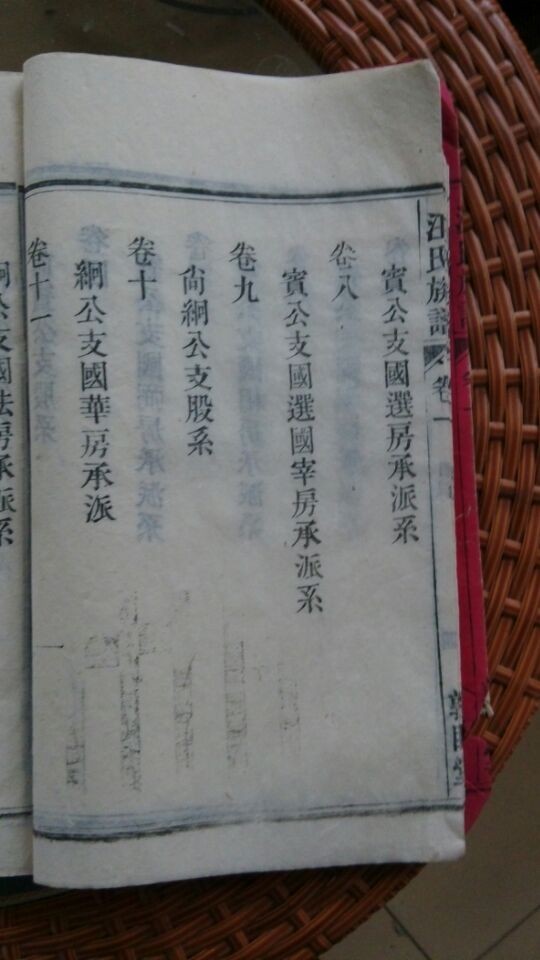 汪氏族譜
卷一
賓公支國選房承派系
卷八
賓公支國選國宰房承派系
卷九
尙絅公支股系
卷十
絅公支國華房承派
卷十一
絅公支國法房承派系